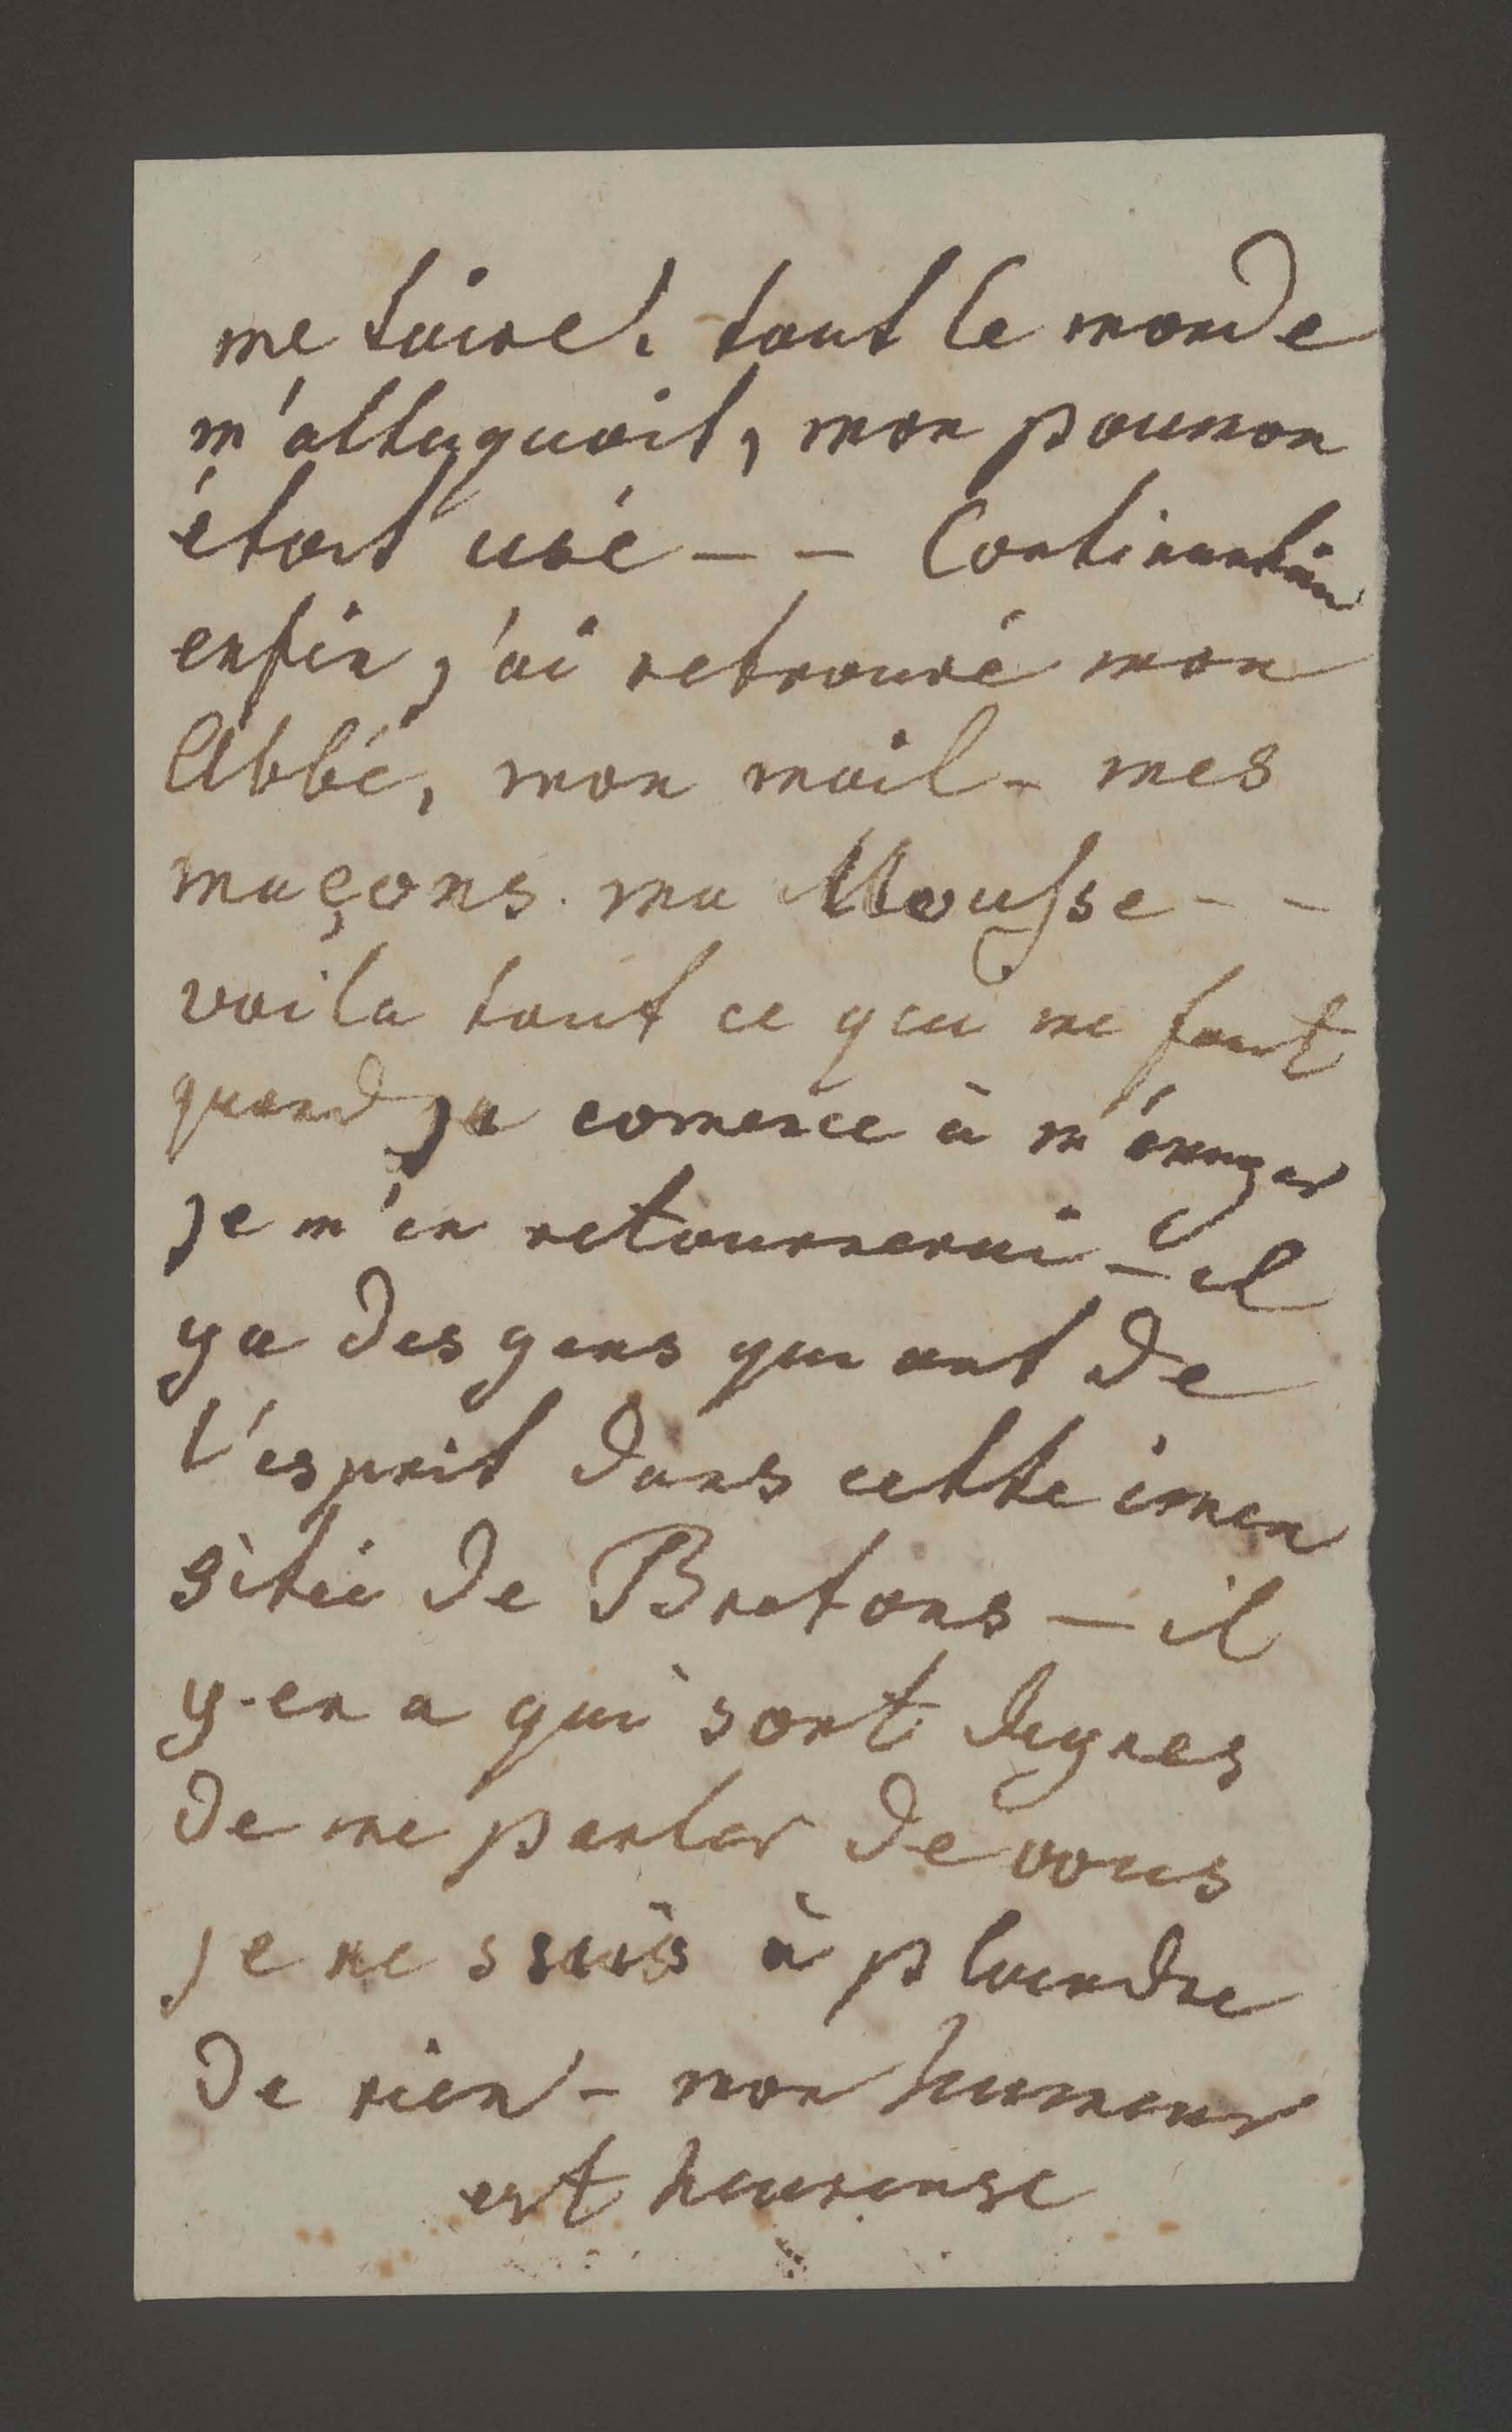 me taire. tout le monde
m'attaquoit, mon poumon
étoit usé - - Continuation
enfin j'ai retrouvé mon
Abbé, mon mail - mes
maçons. ma Mousse - -
voila tout ce qui me faut
quand je comence à m'énuyer
je m'en retournerai - il
ya des gens qui ont de
l'esprit dans cette imen
sitée de Bretons - il
y-en a qui sont dignes
de me parler de vous
je ne suis à plaindre
de rien - mon humeur
est heureuse